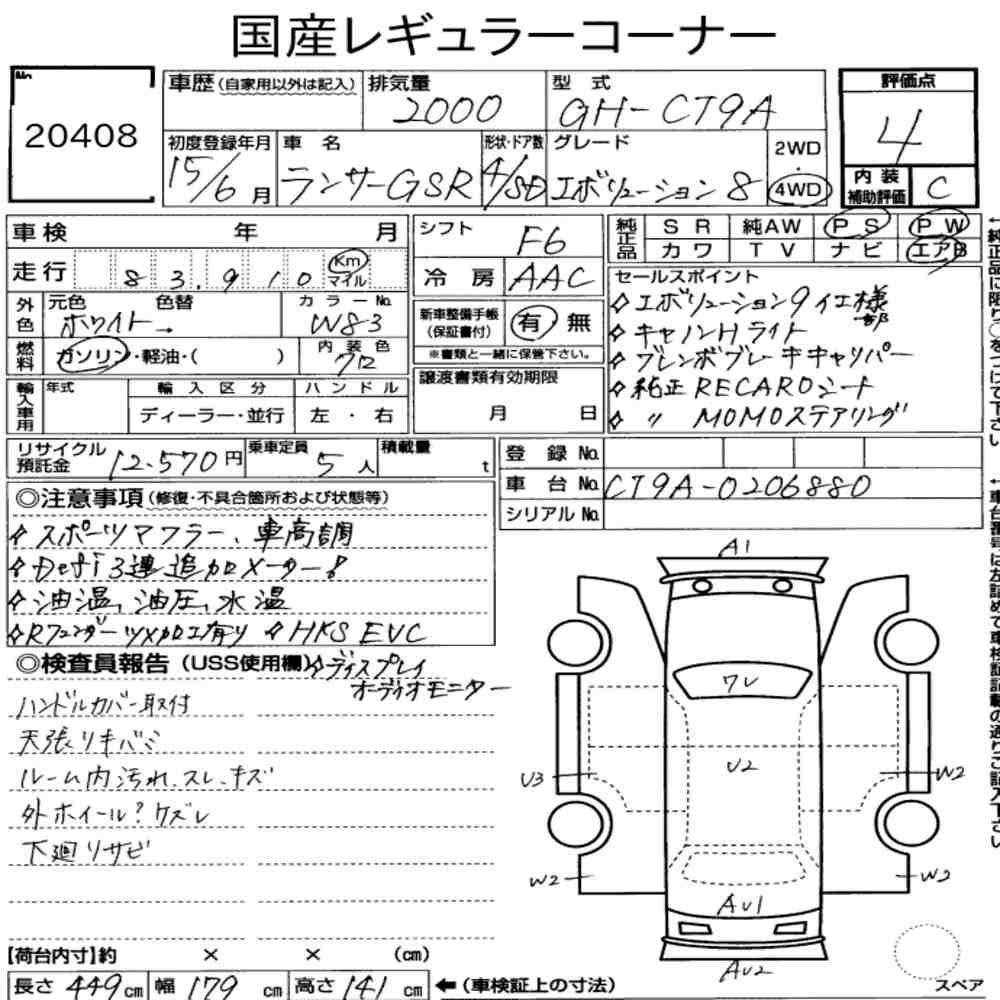 国産レギュラーコーナー
No. 20408
車歴(自家用以外は記入) 排気量 2000 型式 GH-CT9A
評価点 4
初度登録年月 15/6月 車名 ランサーGSR 形状・ドア数 4/SD グレード エボリューション8 2WD・4WD
内装補助評価 C
車検 年 月
走行 83,910 Km マイル
外色 元色 ホワイト→ 色替 カラーNo. W83
燃料 ガソリン・軽油・( ) 内装色 712
輸入車用 年式 輸入区分 ディーラー・並行 ハンドル 左・右
シフト F6
冷房 AAC
新車整備手帳(保証書付) 有 無
※書類と一緒に保管下さい。
譲渡書類有効期限
月 日
純正品 SR 純AW PS PW
カワ TV ナビ エアB
セールスポイント
☆エボリューション9イエ様一部
☆キャノンHライト
☆ブレンボブレーキキャリパー
☆純正RECAROシート
☆ 〃 MOMOステアリング
←純正品に限り○をつけて下さい
リサイクル預託金 12.570円 乗車定員 5人 積載量 t
登録No.
車台No. CT9A-0206880
シリアルNo.
←車台番号は左詰めで車検証記載の通りご記入下さい
◎注意事項(修復・不具合箇所および状態等)
☆スポーツマフラー、車高調
☆Defi 3連追加メーター!
☆油温、油圧、水温
☆Rフェンダーツメ加工有り ☆HKS EVC
☆ディスプレイ
オーディオモニター
◎検査員報告(USS使用欄)
ハンドルカバー取付
天張りキバミ
ルーム内汚れ、スレ、キズ
外ホイール?ケズレ
下廻りサビ
A1
ワレ
U3 U2 W2
W2 W2
AU1
AU2
スペア
【荷台内寸】約 × × (cm)
長さ 449cm 幅 179cm 高さ 141cm ←(車検証上の寸法)